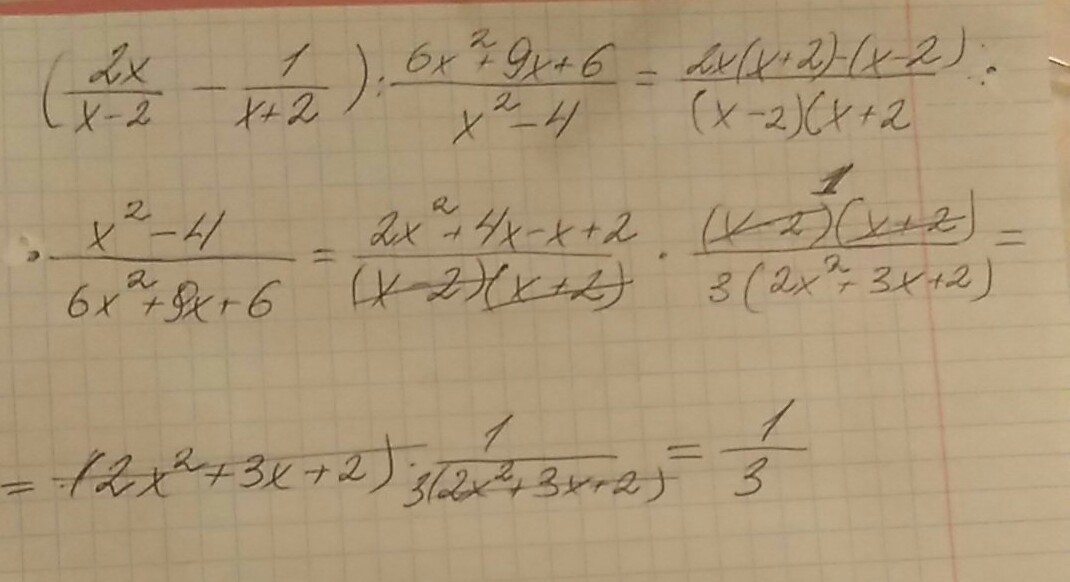 (2x/(x-2) - 1/(x+2)) : (6x²+9x+6)/(x²-4) = (2x(x+2)-(x-2))/((x-2)(x+2) ·
· (x²-4)/(6x²+9x+6) = (2x²+4x-x+2)/((x-2)(x+2)) · ((x-2)(x+2))/(3(2x²+3x+2)) 1 =
= (2x²+3x+2) · 1/(3(2x²+3x+2)) = 1/3